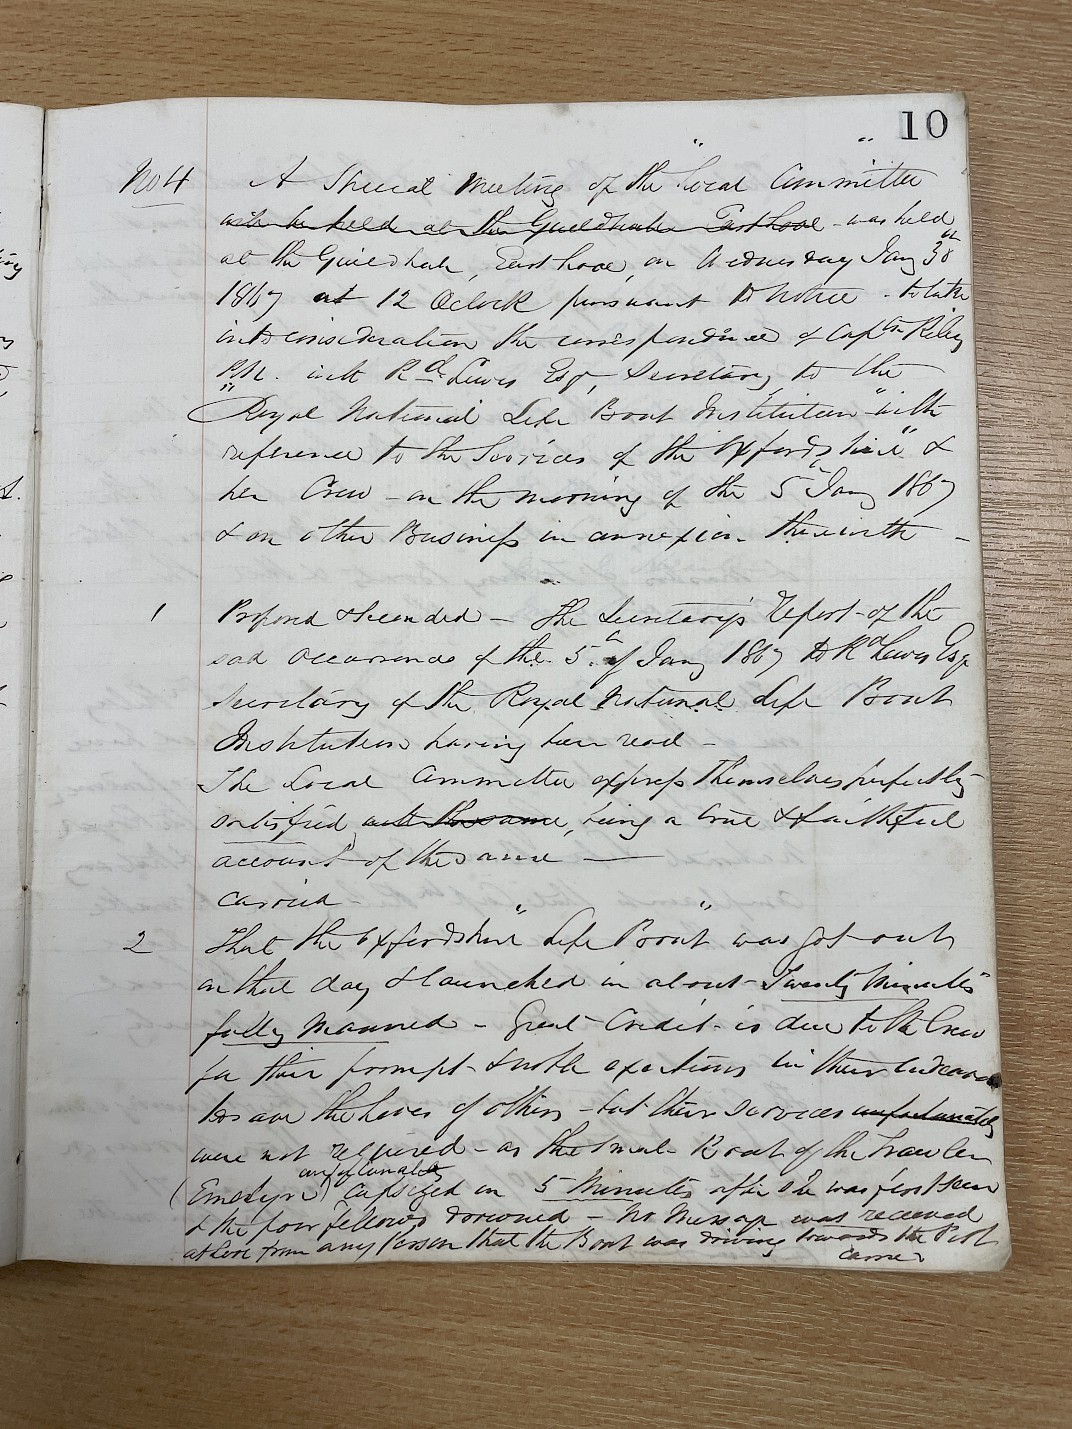 10
No 4 A Special Meeting of the "Local Committee"
will be held at the Guildhall East Looe was held
at the Guildhall, East Looe, on Wednesday Jany 30th
1867 at 12 OClock pursuant to notice - to take
into consideration the correspondence of Captn Riley
R.N. with Rd Lewis Esqr, Secretary to the
"Royal National Life Boat Institution" with
reference to the Services of the "Oxfordshire" &
her Crew - on the morning of the 5th Jany 1867
& on other Business in connexion therewith -
1 Proposed & seconded - The Secretary's Report of the
sad occurrence of the 5th of Jany 1867 to Rd Lewis Esqr
Secretary of the Royal National Life Boat
Institution having been read -
The Local Committee express themselves perfectly
satisfied with the same, being a true & faithful
account of the same
Carried -
2 That the "Oxfordshire" Life Boat was got out
on that day & launched in about "Twenty Minutes"
fully manned - Great Credit is due to the Crew
for their prompt & noble exertions in their endeavor
to save the lives of others - but their services unfortunately
were not required - as the small Boat of the Trawler
unfortunately
(Emelyn) capsized in 5 Minutes after she was first seen
& the poor fellows drowned - No Message was received
at Looe from any Person that the Boat was driving towards the Port
Carried